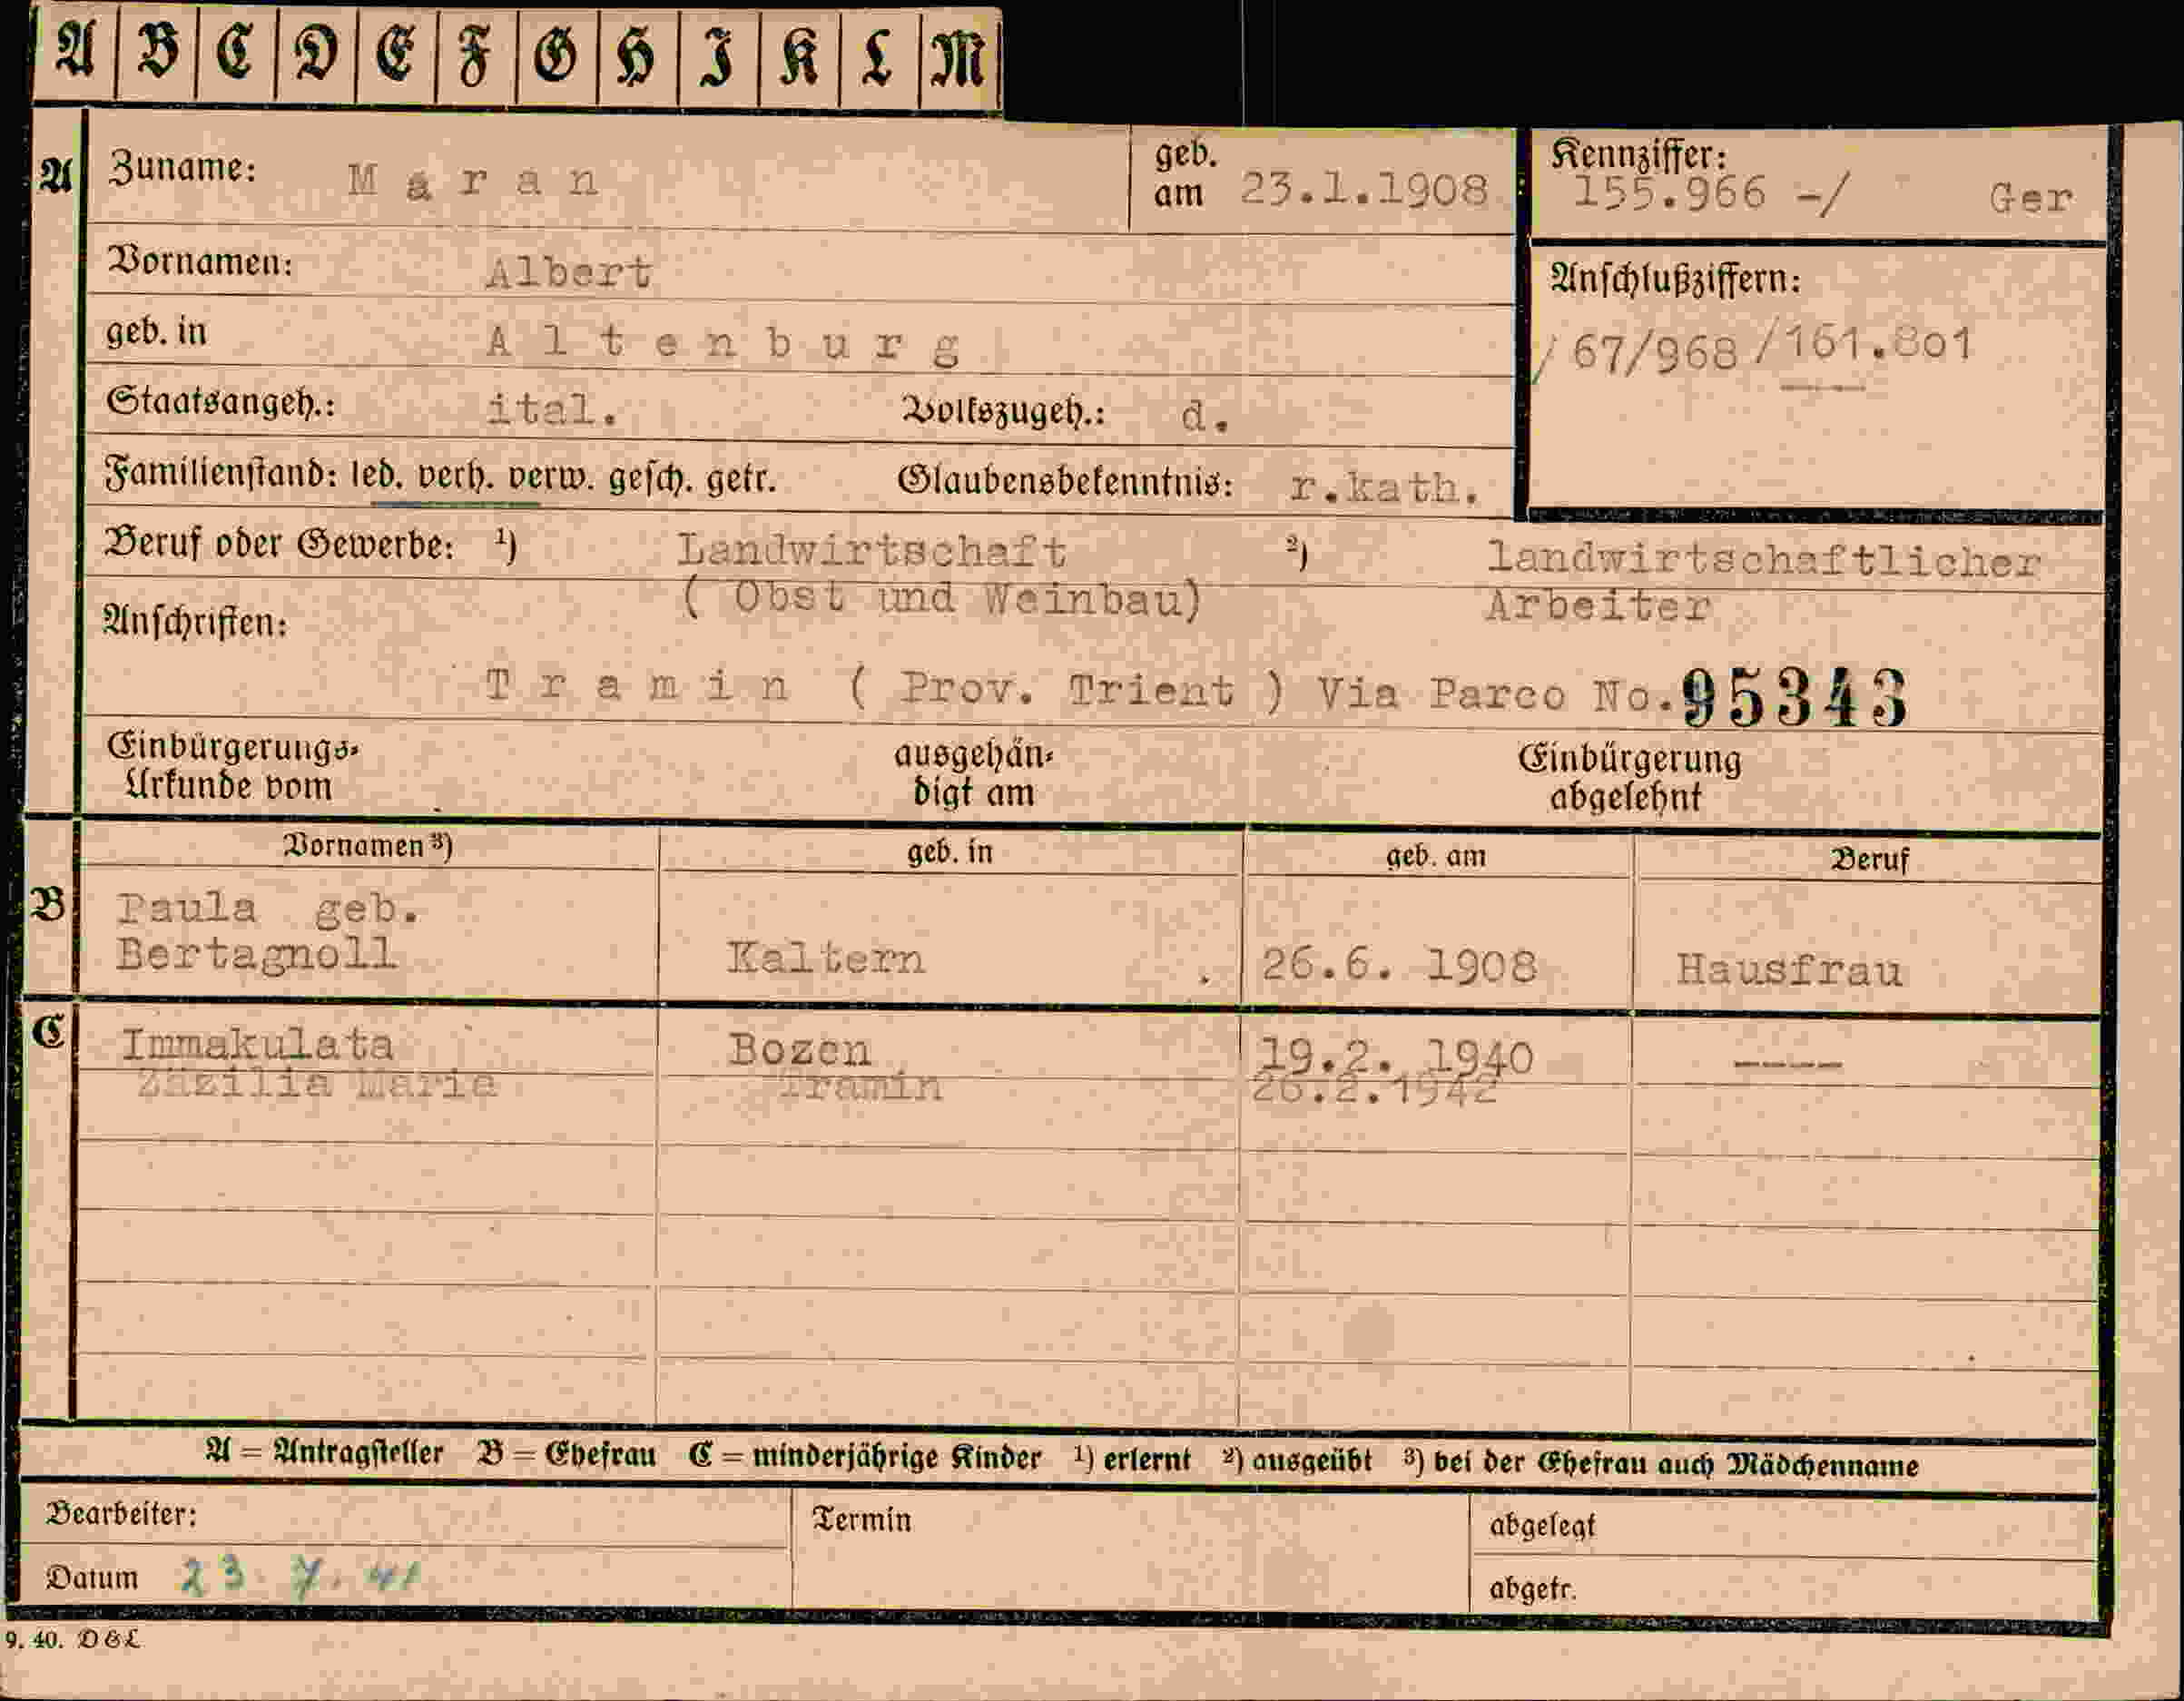 A B C D E F G H I K L M
A Zuname: Maran geb. am 23.1.1908 Kennziffer: 155.966 -/ Ger
Vornamen: Albert Anschlußziffern:
geb. in Altenburg / 67/968 /161.801
Staatsangeh.: ital. Volkszugeh.: d.
Familienstand: led. verh. verw. gesch. getr. Glaubensbekenntnis: r.kath.
Beruf oder Gewerbe: 1) Landwirtschaft 2) landwirtschaftlicher
( Obst und Weinbau) Arbeiter
Anschriften:
Tramin ( Prov. Trient ) Via Parco No. 95343
Einbürgerungs- ausgehän- Einbürgerung
Urkunde vom digt am abgelehnt
Vornamen 3) geb. in geb. am Beruf
B Paula geb.
Bertagnoll Kaltern 26.6. 1908 Hausfrau
C Immakulata Bozen 19.2. 1940 ----
Zäzilia Marie Tramin 26.2.1942
A = Antragsteller B = Ehefrau C = minderjährige Kinder 1) erlernt 2) ausgeübt 3) bei der Ehefrau auch Mädchenname
Bearbeiter: Termin abgelegt
Datum 23. 7. 41 abgetr.
9. 40. DGL